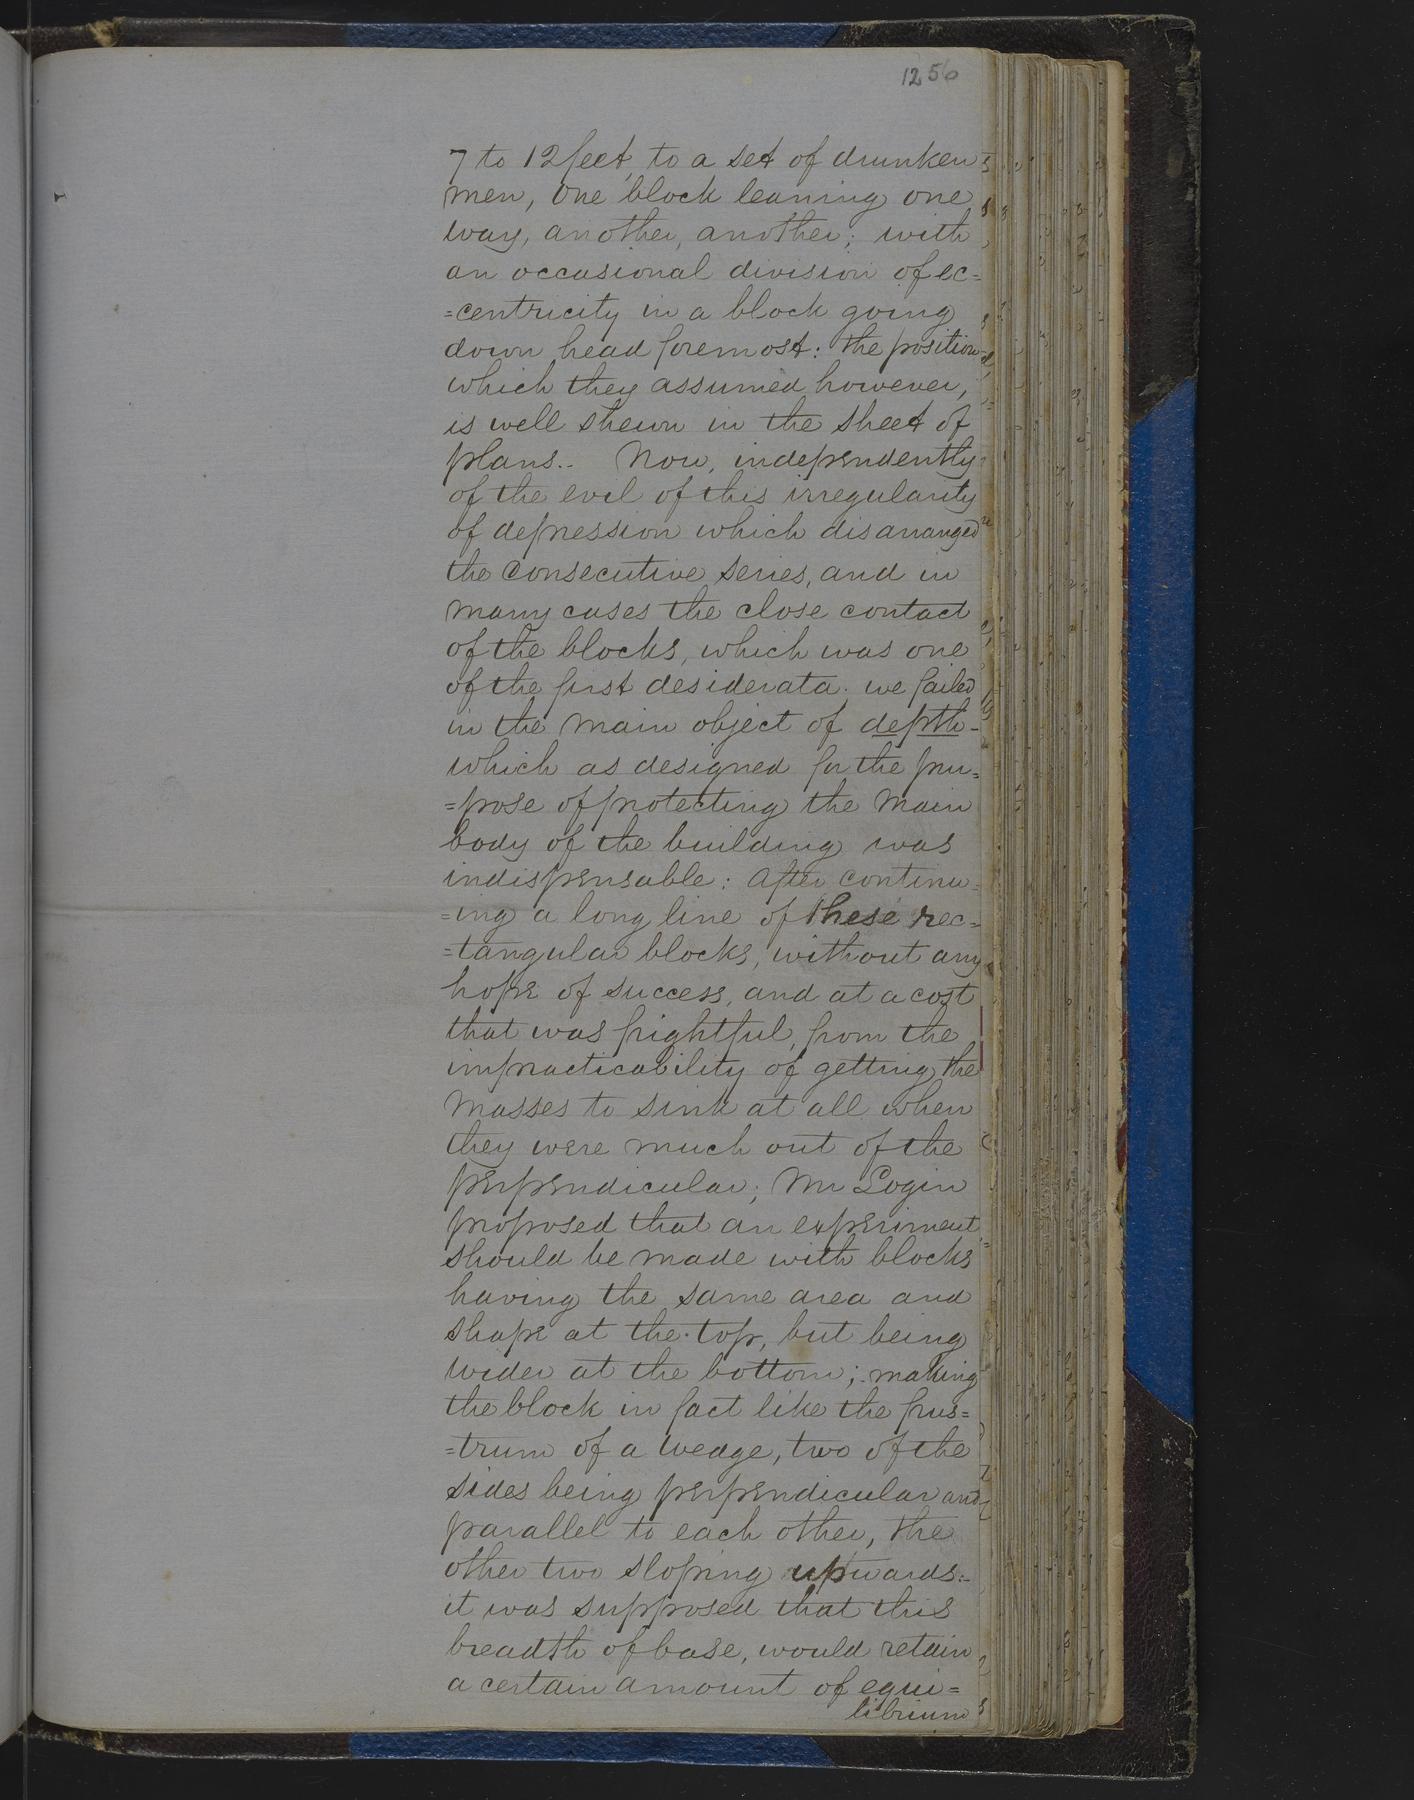 1256
7 to 12 feet, to a set of drunken
men, One block leaning one
way, another, another; with
an occasional division of ec=
=centricity in a block going
down head foremost: the position
which they assumed however,
is well shewn in the sheet of
plans.. Now, independently
of the evil of this irregularity
of depression which disarranged
the consecutive series, and in
many cases the close contact
of the blocks, which was one
of the first desiderata. we failed
in the main object of depth-
which as designed for the pur=
=pose of protecting the main
body of the building was
indispensable: After continu=
=ing a long line of these rec=
=tangular blocks, without any
hope of success, and at a cost
that was frightful, from the
impracticability of getting the
masses to sink at all when
they were much out of the
perpendicular; Mr Login
proposed that an experiment
should be made with blocks
having the same area and
shape at the top, but being
wider at the bottom; making
the block in fact like the frus=
=trum of a wedge, two of the
sides being perpendicular and
parallel to each other, the
other two sloping upwards:-
it was supposed that this
breadth of base, would retain
a certain amount of equi=
librium